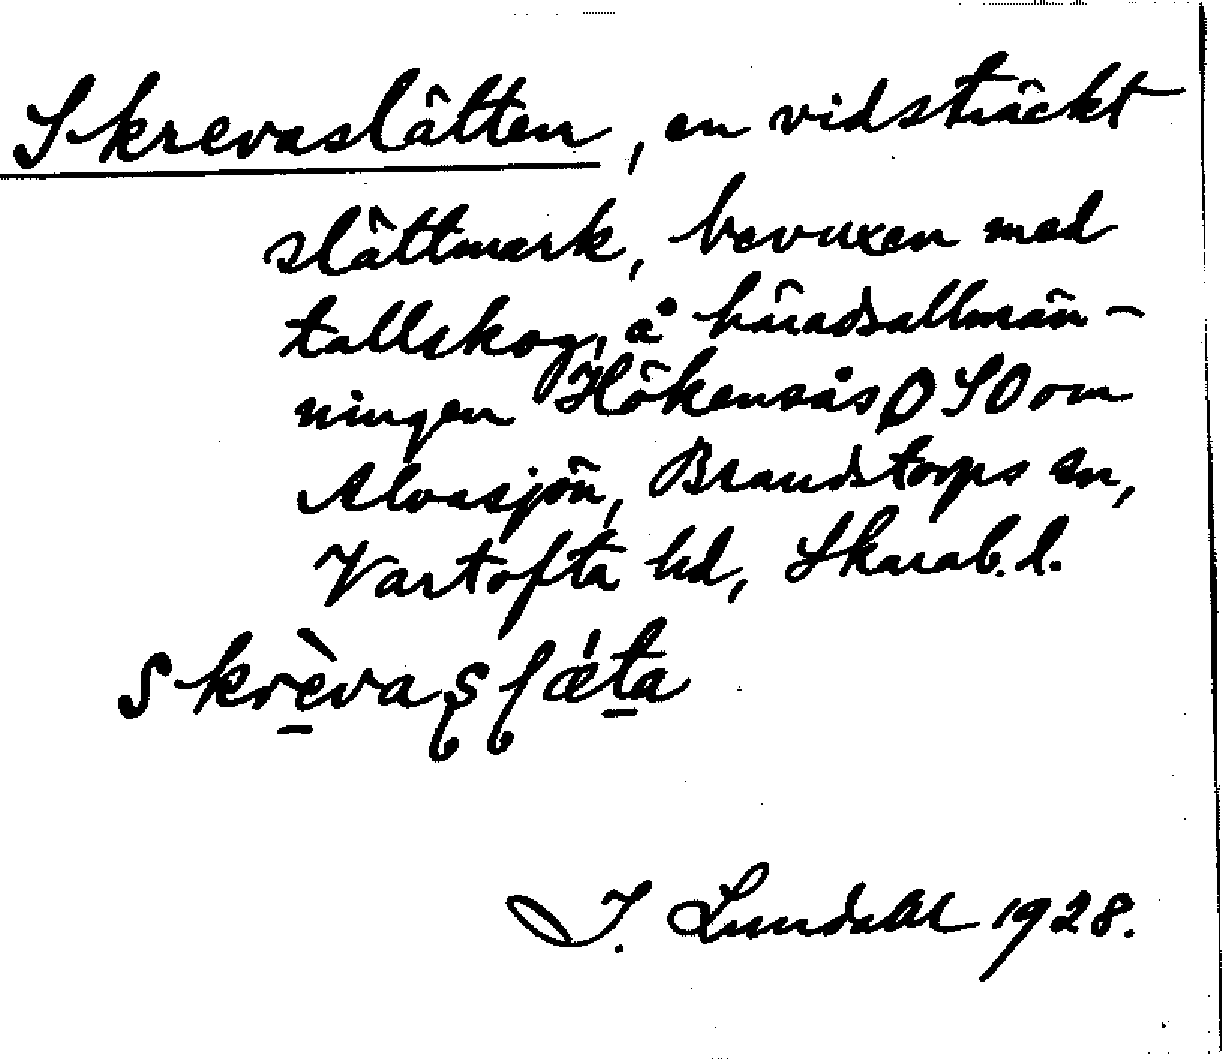 Skrevaslätten, en vidsträckt
slättmark, bevuxen med
tallskog, å häradsallmän-
ningen Hökensås O SO om
Alvasjön, Brandstorps sn,
Vartofta hd, Skarab. l.
skrèvaslǽta
I. Lundahl 1928.